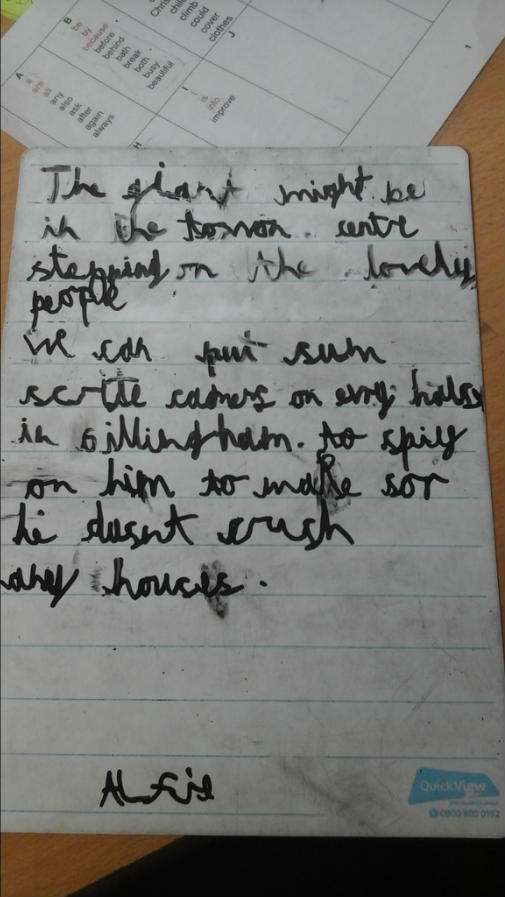 B
be
by
because
before
behind
bath
break
both
busy
beautiful
Chris
climb
could
cover
clothes
J
A
a
are
all
any
also
ask
after
again
always
H
I
is
info
improve
1
The giant might be
in the towon. centre
stepping on the lovely
people
We can put sum
scrtte camers on evry
in Gillingham. to spiy
on him to make sor
he dusnt crush
any houses.
ALFie
QuickView
0800 980 0192